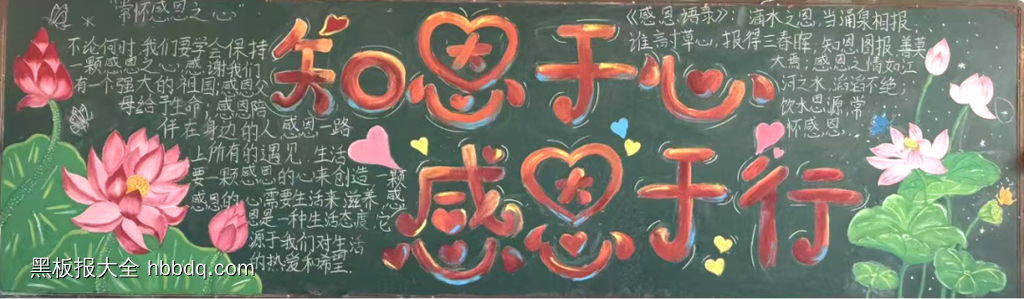 "常怀感恩之心"
不论何时,我们要学会保持
一颗感恩之心;感谢我们
有一个强大的祖国;感恩父
母给予生命;感恩陪
伴在身边的人,感恩一路
上所有的遇见.生活
要一颗感恩的心来创造
一颗感
感恩的心需要生活来滋养
恩是一种生活态度,它
源于我们对生活
的热爱和希望.
知恩于心
感恩于行
《感恩语录》:滴水之恩,当涌泉相报,
谁言寸草心,报得三春晖,知恩图报,善莫
大焉;感恩之情如江
河之水,滔滔不绝;
饮水思源,常
怀感恩.
黑板报大全 hbbdq.com